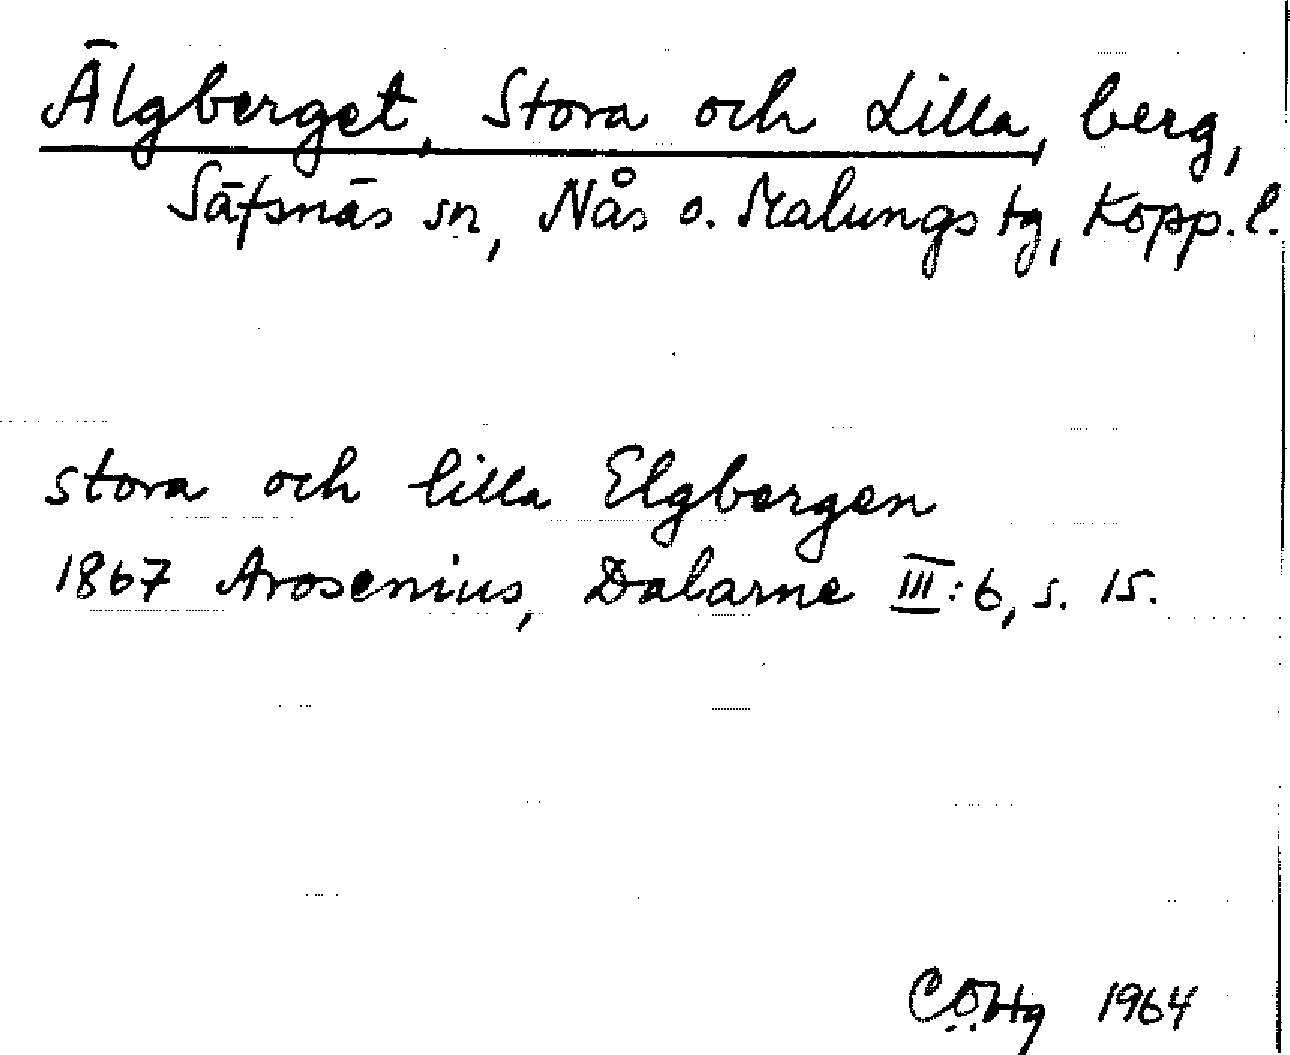 Älgberget, Stora och Lilla, berg,
Säfsnäs sn, Nås o. Malungs tg, Kopp. l.
stora och lilla Elgbergen
1867 Arosenius, Dalarne III:6, s. 15.
1964